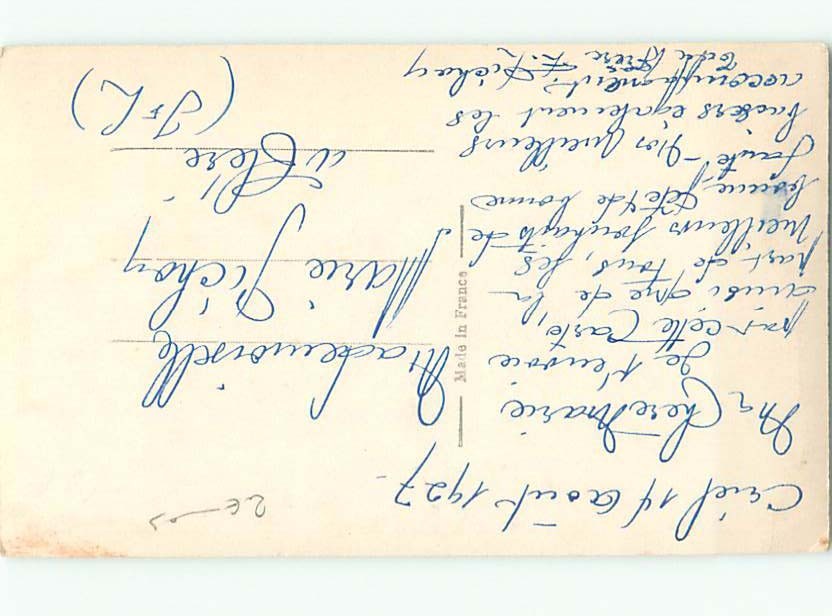 Criel 14 Août 1927
Ma Chère Marie
Je t'envoie
par cette Carte,
ainsi que de la
part de tous, les
Meilleurs souhaits de
bonne fête & de bonne
santé - Nos Meilleurs
baisers également les
accompagnent.
Ton Frère
Pichon
Made in France
Mademoiselle
Marie Pichon
à Clère
2€